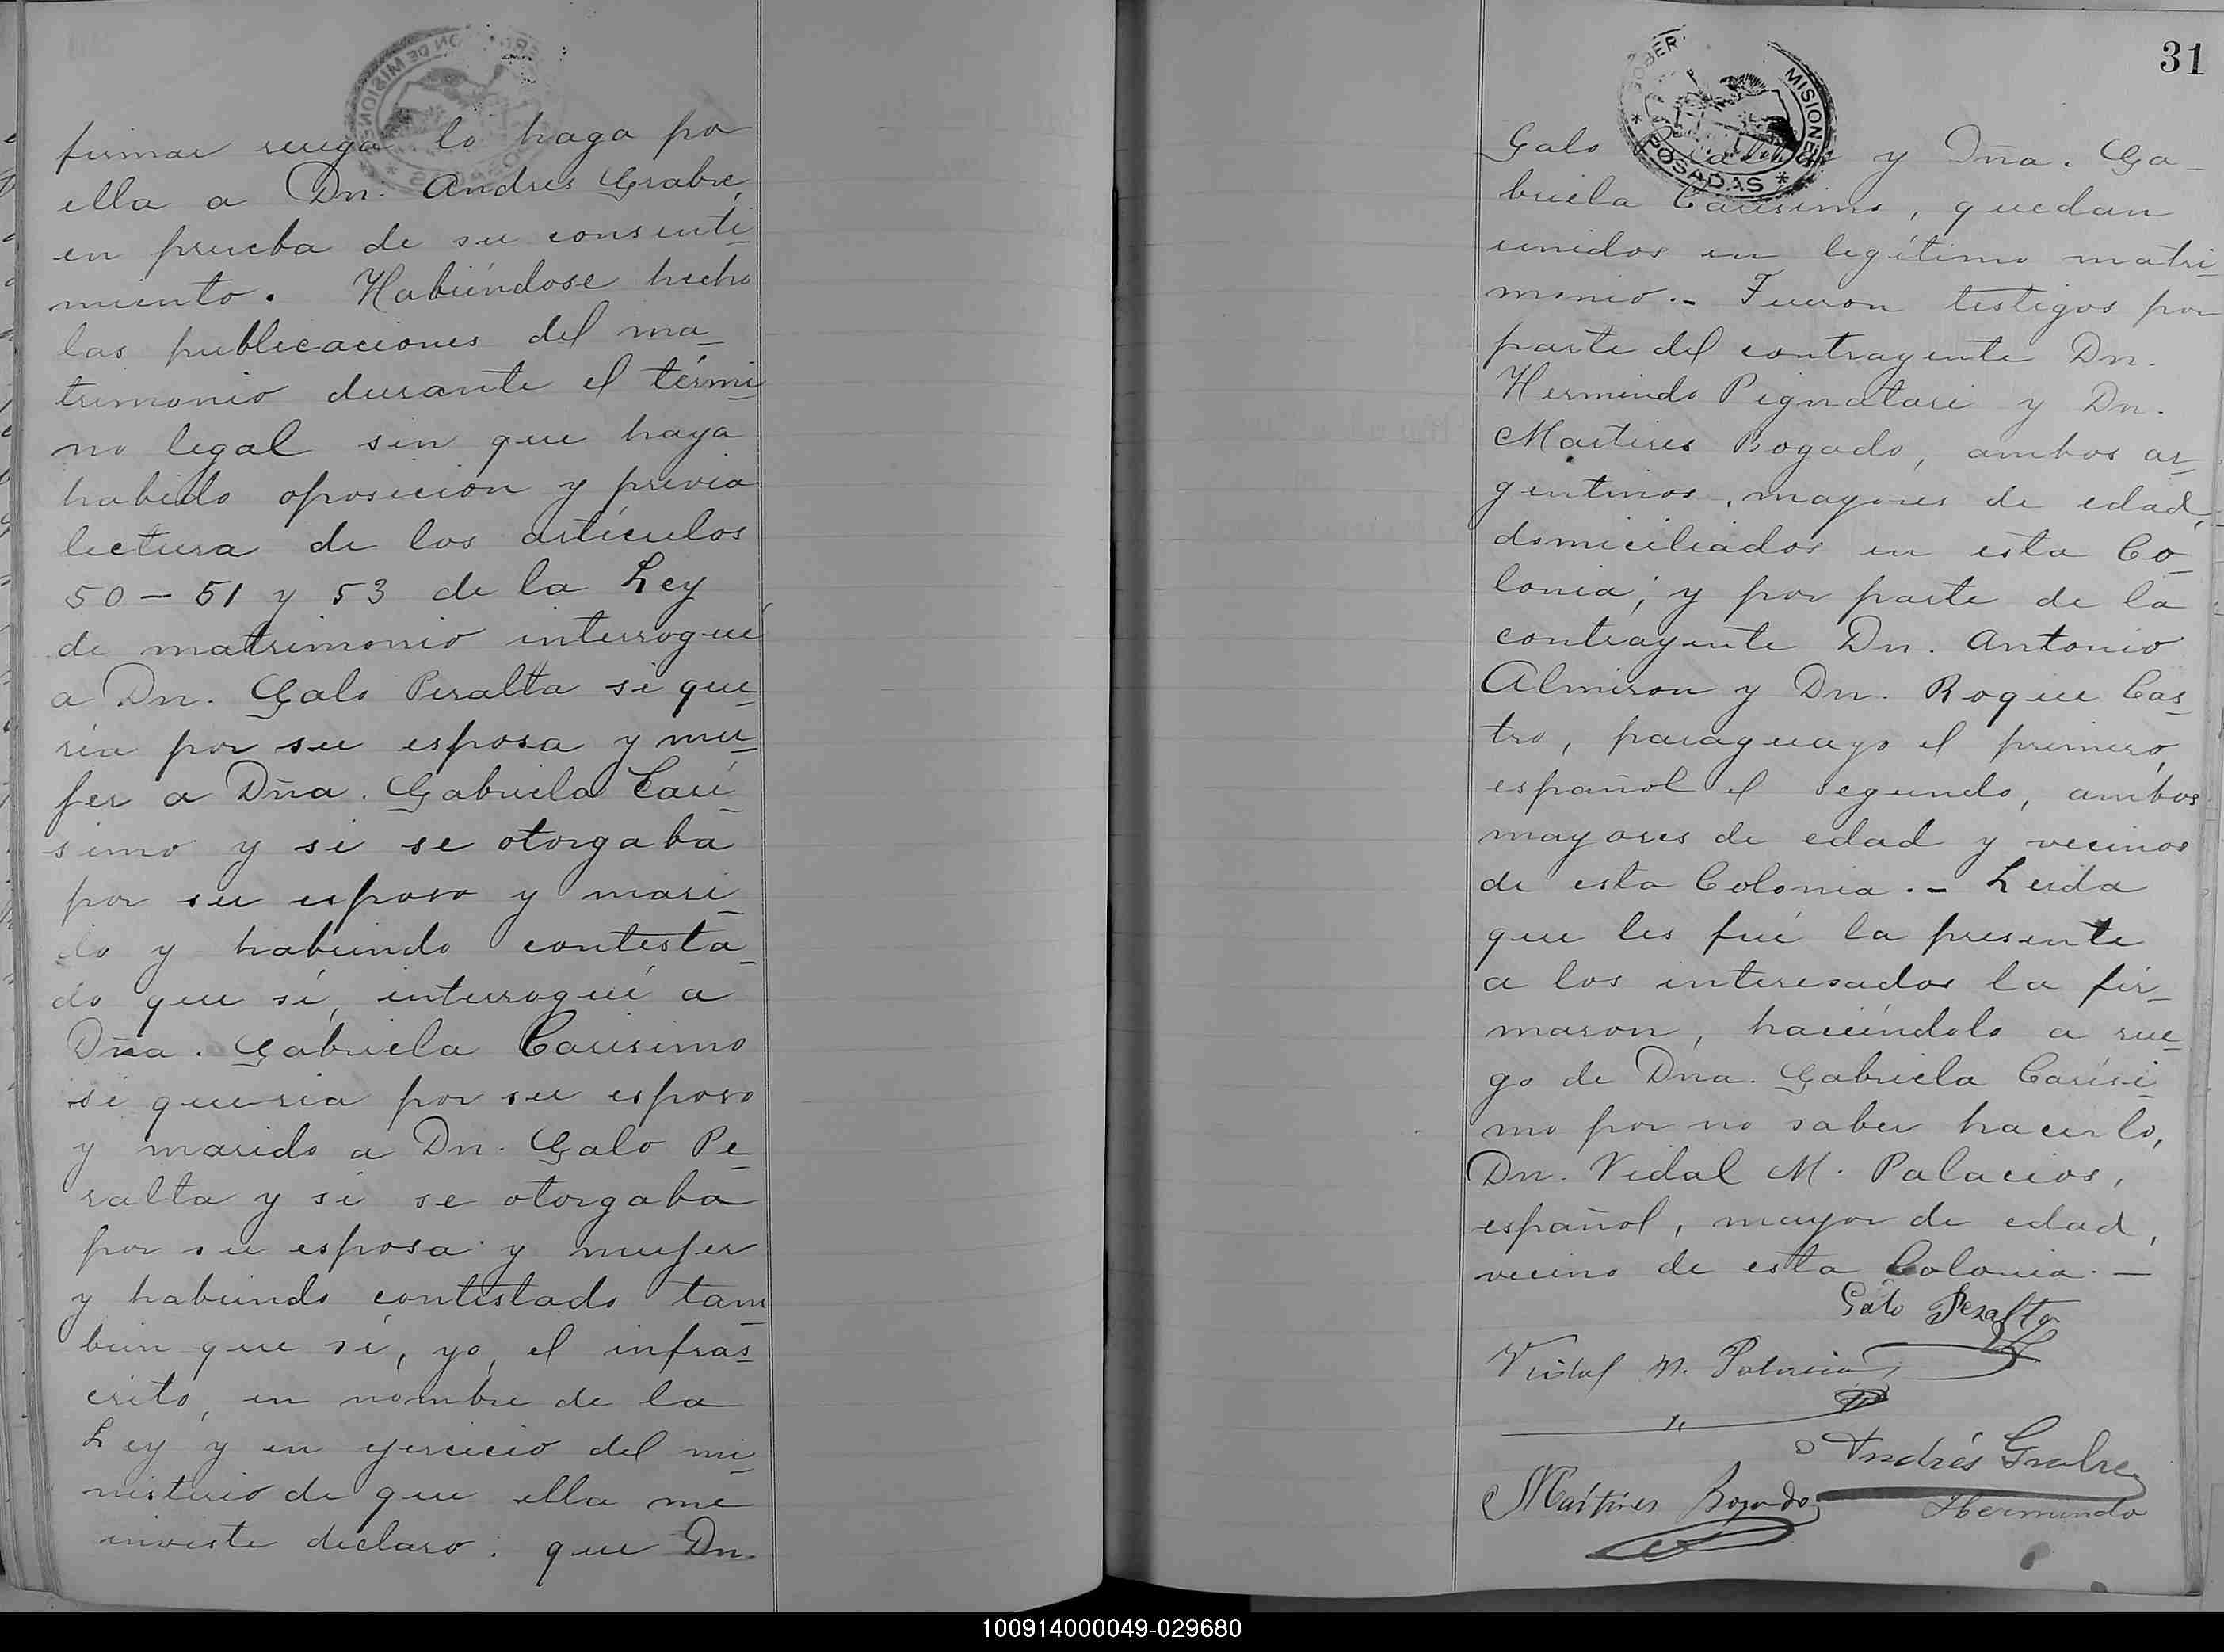 firmar ruega lo haga por
ella a Dn. Andrés Grabre,
en prueba de su consenti-
miento. Habiéndose hecho
las publicaciones del ma-
trimonio durante el térmi-
no legal sin que haya
habido oposición y previa
lectura de los artículos
50 - 51 y 53 de la Ley
de matrimonio interrogué
a Dn. Galo Peralta si que-
ria por su esposa y mu-
jer a Dña. Gabriela Carí-
simo y si se otorgaba
por su esposo y mari-
do y habiendo contesta-
do que sí, interrogué a
Dña. Gabriela Carisimo
si queria por su esposo
y marido a Dn. Galo Pe-
ralta y si se otorgaba
por su esposa y mujer
y habiendo contestado tam-
bien que sí, yo, el infras-
crito, en nombre de la
Ley y en ejercicio del mi-
nisterio de que ella me
inviste declaro: que Dn.
31
GOBER. MISIONES
* POSADAS *
Galo y Dña. Ga-
briela Carisimo, quedan
unidos en legítimo matri-
monio.- Fueron testigos por
parte del contrayente Dn.
Hermindo Pignatari y Dn.
Martires Bogado, ambos ar-
gentinos, mayores de edad,
domiciliados en esta Co-
lonia; y por parte de la
contrayente Dn. Antonio
Almiron y Dn. Roque Cas-
tro, paraguayo el primero,
español el segundo, ambos
mayores de edad y vecinos
de esta Colonia.- Leida
que les fué la presente
a los interesados la fir-
maron, haciéndolo a rue-
go de Dna. Gabriela Carísi-
mo por no saber hacerlo,
Dn. Vidal M. Palacios,
español, mayor de edad,
vecino de esta Colonia.-
Galo Peralta
Vidal M. Palacios
Andrés Grabre
Mártires Bogado
Hermindo
100914000049-029680